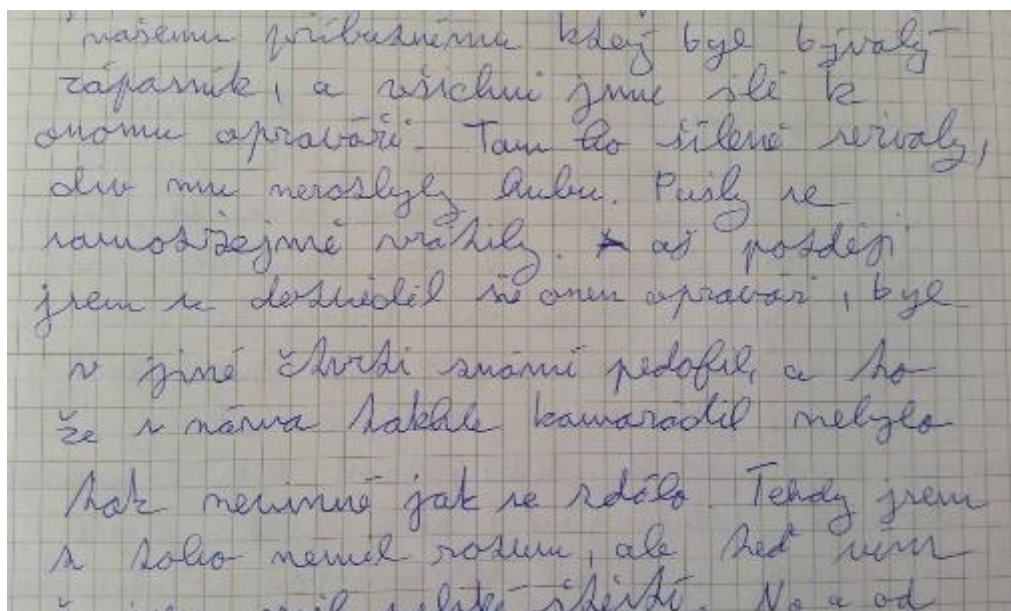 našemu příbuznému kdoý byl bývalý
zápasník, a všichni jsme šli k
onomu opraváři. Tam ho šíleně seřvaly,
div mu nerozbyly hubu. Pušly se
samozřejmě vrátily. až později
jsem se dozvěděl že onen opravář, byl
v jiné čtvrti známí pedofil, a to
že s náma takhle kamarádil nebylo
tak nevinné jak se zdálo. Tehdy jsem
z toho neměl rozum, ale teď vím
štěstí. No a od